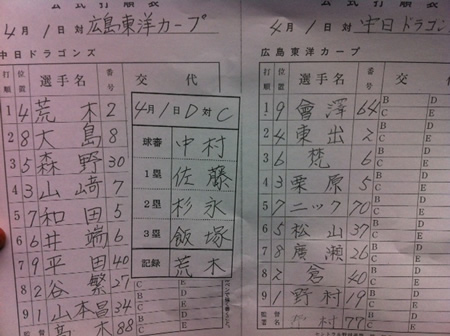 公式打順表
4月1日対広島東洋カープ
中日ドラゴンズ
打順 位置 選手名 番号 交代
1 4 荒木 2
2 8 大島 8
3 5 森野 30
4 3 山﨑 7
5 7 和田 5
6 6 井端 6
7 9 平田 40
8 2 谷繁 27
9 1 山本昌 34
監督 高木 88
4月1日D対C
球審 中村
1塁 佐藤
2塁 杉永
3塁 飯塚
記録 荒木
公式打順表
4月1日対中日ドラゴン
広島東洋カープ
打順 位置 選手名 番号 交
1 9 會澤 64 B D C E
2 4 東出 2 B D C E
3 6 梵 6 B D C E
4 3 栗原 5 B D C E
5 7 ニック 70 B D C E
6 5 松山 37 B D C E
7 8 廣瀬 26 B D C E
8 2 倉 40 B D C E
9 1 野村 19 B D C E
監督 野村 77